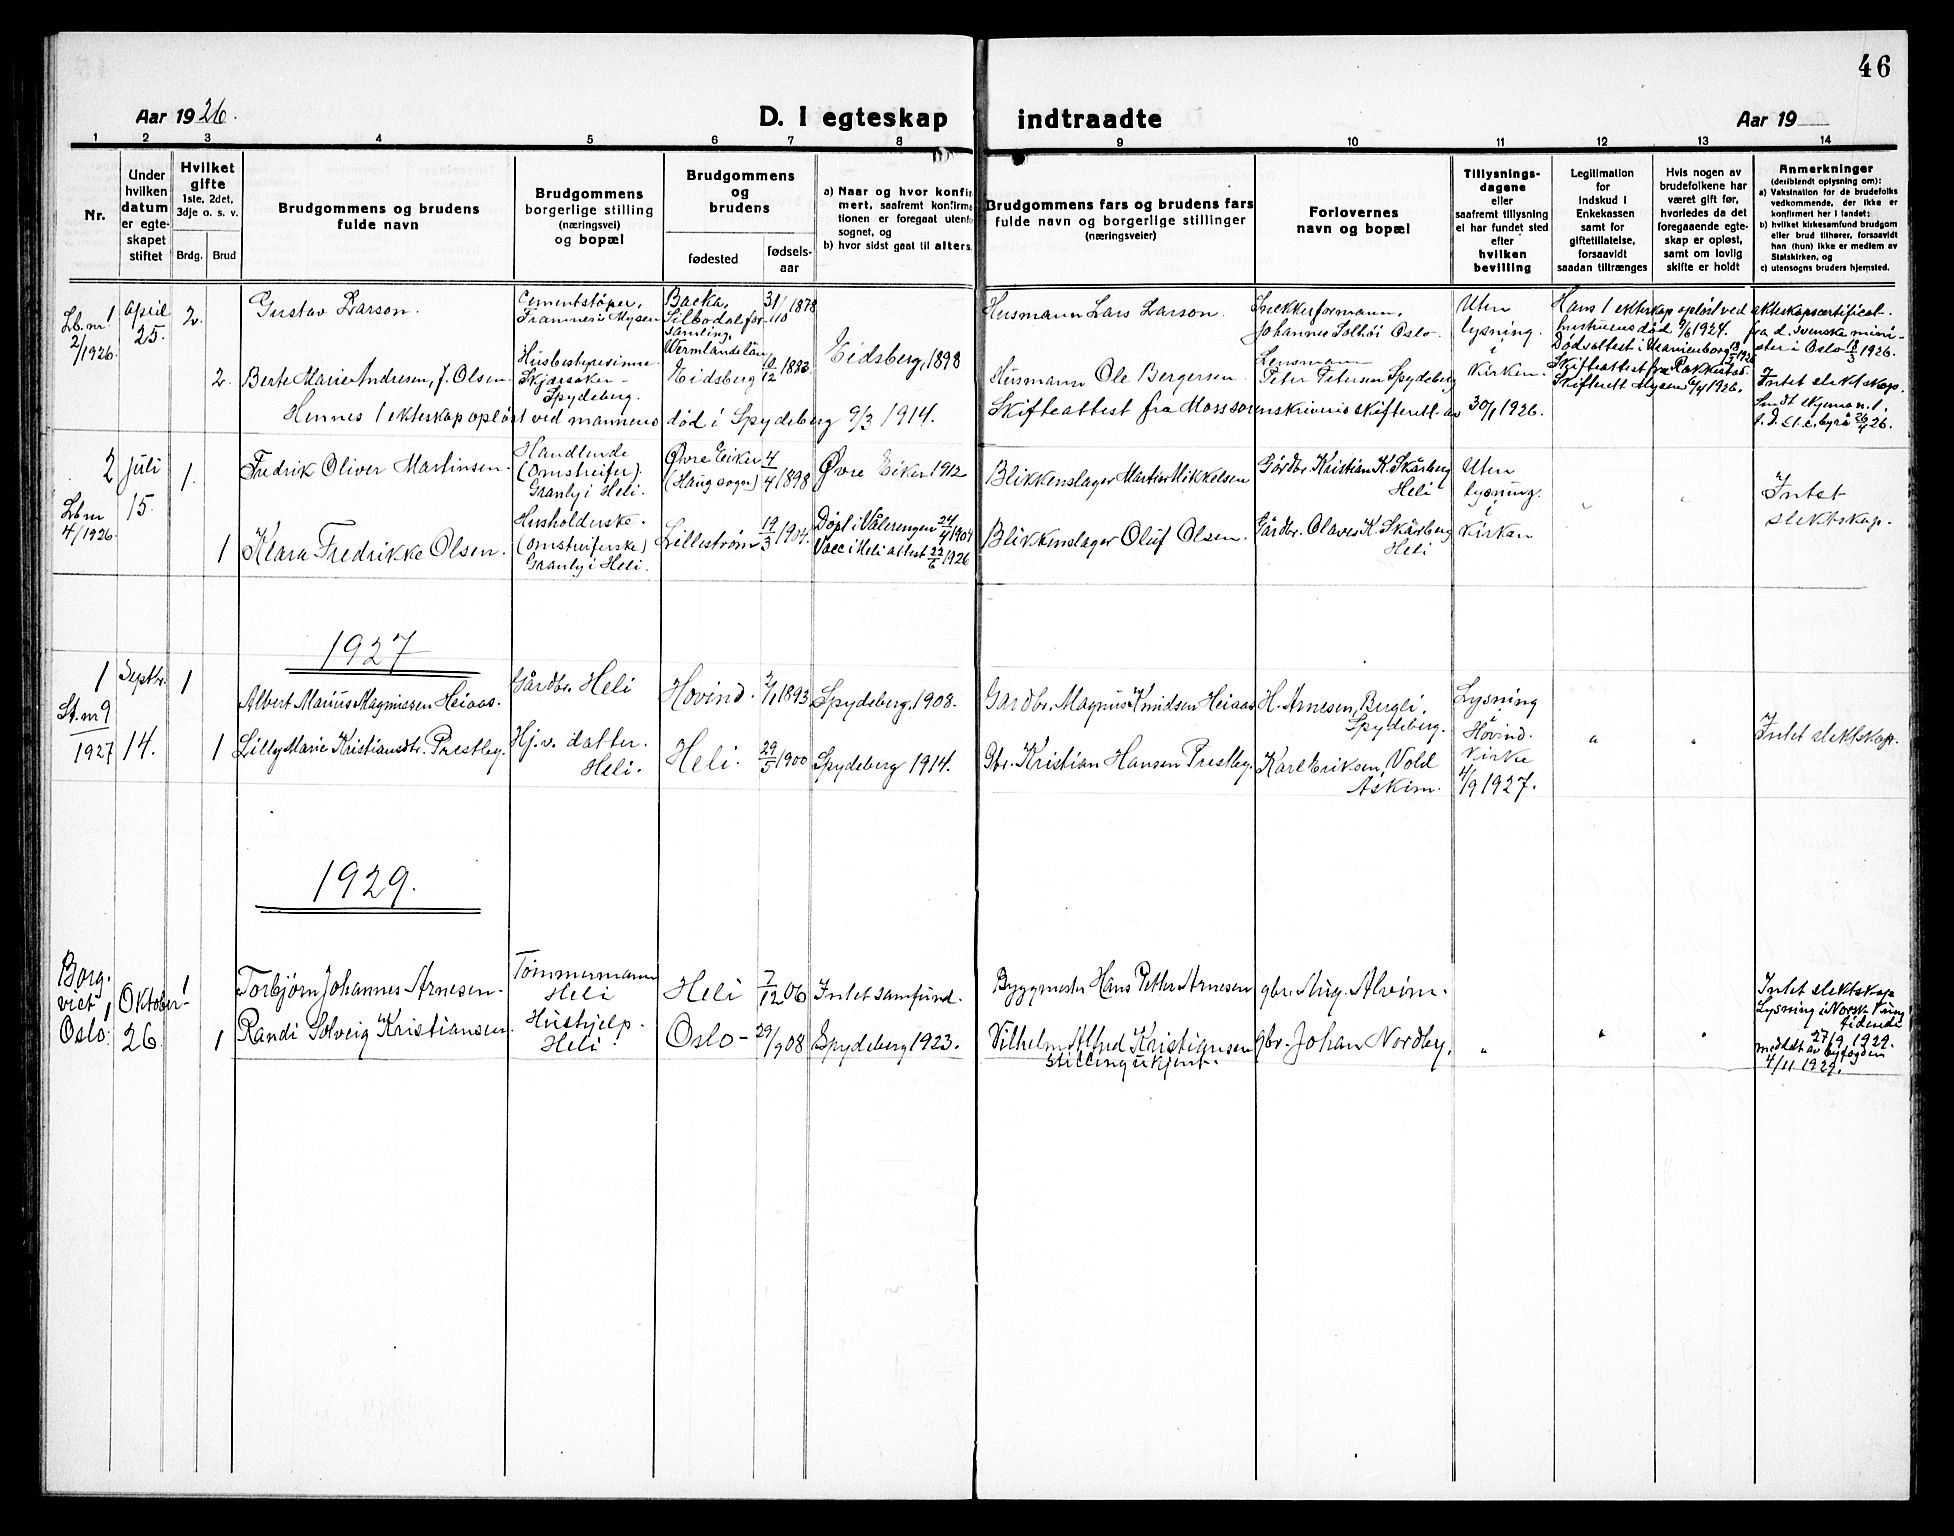 46
Aar 1926.
D. I egteskap indtraadte
Aar 19
1 2 3 4 5 6 7 8 9 10 11 12 13 14
Nr.
Under
hvilken
datum
er egte-
skapet
stiftet
Hvilket
gifte
1ste, 2det,
3dje o. s. v.
Brdg. Brud
Brudgommens og brudens
fulde navn
Brudgommens
borgerlige stilling
(næringsvei)
og bopæl
Brudgommens
og
brudens
fødested
fødsels-
aar
a) Naar og hvor konfir-
mert, saafremt konfirma-
tionen er foregaat utenfor
sognet, og
b) hvor sidst gaat til alters.
Brudgommens fars og brudens fars
fulde navn og borgerlige stillinger
(næringsveier)
Forlovernes
navn og bopæl
Tillysnings-
dagene
eller
saafremt tillysning
ei har fundet sted
efter
hvilken
bevilling
Legitimation
for
indskud i
Enkekassen
samt for
giftetillatelse,
forsaavidt
saadan tiltrænges
Hvis nogen av
brudefolkene har
været gift før,
hvorledes da det
foregaaende egte-
skap er opløst,
samt om lovlig
skifte er holdt
Anmerkninger
(deriblendt oplysning om):
a) Vaksination for de brudefolks
vedkommende, der ikke er
konfirmert her i landet;
b) hvilket kirkesamfund brudgom
eller brud tilhører, forsaavidt
han (hun) ikke er medlem av
Statskirken, og
c) utensogns bruders hjemsted.
Lb. nr. 1
2/1926.
April
25.
2.
Gustav Larson.
Cementstøper,
Framnes i Mysen
Backa,
Silbodal for-
samling,
Wermlandslän
31/10 1878
Husmann Lars Larson.
Snekkerformann,
Johannes Solhöi Oslo.
Uten
lysning.
i
kirken.
Hans 1 ekteskap opløst ved
hustruens død 9/6 1924.
Dødsattest i Marienborg 18/3 1926
Skifteattest fra Rakkestad
Skifterett Mysen 6/4 1926.
ekteskapscertificat
fra d. Svenske mini-
ster i Oslo 18/3 1926.
Intet slektskap.
2.
Berte Marie Andresen, f. Olsen.
Husbestyrerinne
Skjærsaker -
Spydeberg.
Eidsberg
10/12 1883
Eidsberg, 1898
Husmann Ole Bergersen.
Lensmann
Peter Petersen Spydeberg
Hennes 1 ekteskap opløst ved mannens død i Spydeberg 9/3 1914.
Skifteattest fra Moss sorenskriveris skifterett av 30/1 1926.
2
Lb nr
4/1926.
Juli
15.
1.
Fredrik Oliver Martinsen.
Handlende
(Omstreifer).
Granly i Heli.
Øvre Eiker
(Haug sogn)
4/4 1898
Øvre Eiker 1912
Blikkenslager Martin Mikkelsen
Gårdbr. Kristian K. Skårberg
Heli
Uten
lysning.
i
kirken
"
"
Intet
slektskap.
1
Klara Fredrikke Olsen.
Husholderske.
(Omstreiferske)
Granly i Heli.
Lillestrøm
19/3 1904.
Døpt i Vålerengen 24/4 1904
Vacc i Heli attest 22/6 1926
Blikkenslager Oluf Olsen.
Gårdbr. Olaves K. Skårberg
Heli
1927
1
St. nr 9
1927
Septbr.
14.
1
Albert Marius Magnussen Heiaas.
Gårdbr. Heli
Hovind.
2/1 1893
Spydeberg, 1908.
Gardbr. Magnus Knudsen Heiaas
H. Arnesen, Bergli,
Spydeberg.
Lysning
i
Hovind.
kirke
4/9 1927.
"
"
Intet slektskap.
1
Lilly Marie Kristiansdtr. Prestby.
Hj.v. datter.
Heli.
Heli.
29/5 1900
Spydeberg 1914.
Gbr. Kristian Hansen Prestby.
Karl Eriksen, Vold
Askim.
1929.
Borg.
viet 1
Oslo:
Oktober
26
1
Torbjørn Johannes Arnesen.
Tømmermann
Heli
Heli
7/12 06
Intet samfund.
Byggmester Hans Petter Arnesen
gbr. Aug. Alvim.
Intet slektskap
Lysning i Norsk Kung
tidende
27/9 1929.
meddelt av byfogden
4/11 1929.
1
Randi Solveig Kristiansen.
Hushjelp.
Heli
Oslo -
29/9 08
Spydeberg 1923.
Vilhelm Alfred Kristiansen
Stilling ukjent.
gbr. Johan Nordby.
"
"
"